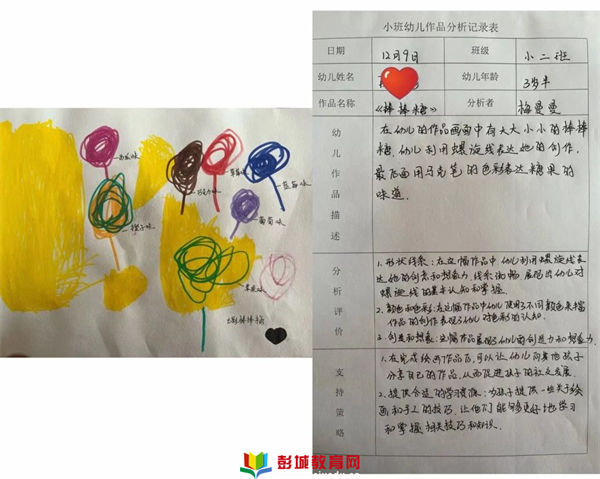 西瓜味
橙子味
巧克力味
草莓味
蓝莓味
葡萄味
苹果味
小班幼儿作品分析记录表
日期 12月9日 班级 小二班
幼儿姓名 幼儿年龄 3岁半
作品名称 《棒棒糖》 分析者 梅曼曼
幼儿作品描述
在幼儿的作品画面中有大大小小的棒棒
糖,幼儿利用螺旋线表达她的创作,
最后画用马克笔的色彩表达糖果的
味道.
分析评价
1.形状线条:在这幅作品中幼儿利用螺旋线表
达她的创意和想象力,线条流畅,展现出幼儿对
螺旋线的基本认知和掌握.
2.颜色和色彩:在这幅作品中幼儿使用了不同颜色来描
作品的创作表现了幼儿对色彩的认知.
3.创造和想象:这幅作品展现了幼儿的创造力和想象力.
支持策略
1.在完成绘画作品后,可以让幼儿向其他孩子
分享自己的作品,从而促进孩子的社交发展.
2.提供合适的学习资源:为孩子提供一些关于绘
画和手工的技巧,让他们能够更好地学习
和掌握相关技巧和知识.
彭城教育网